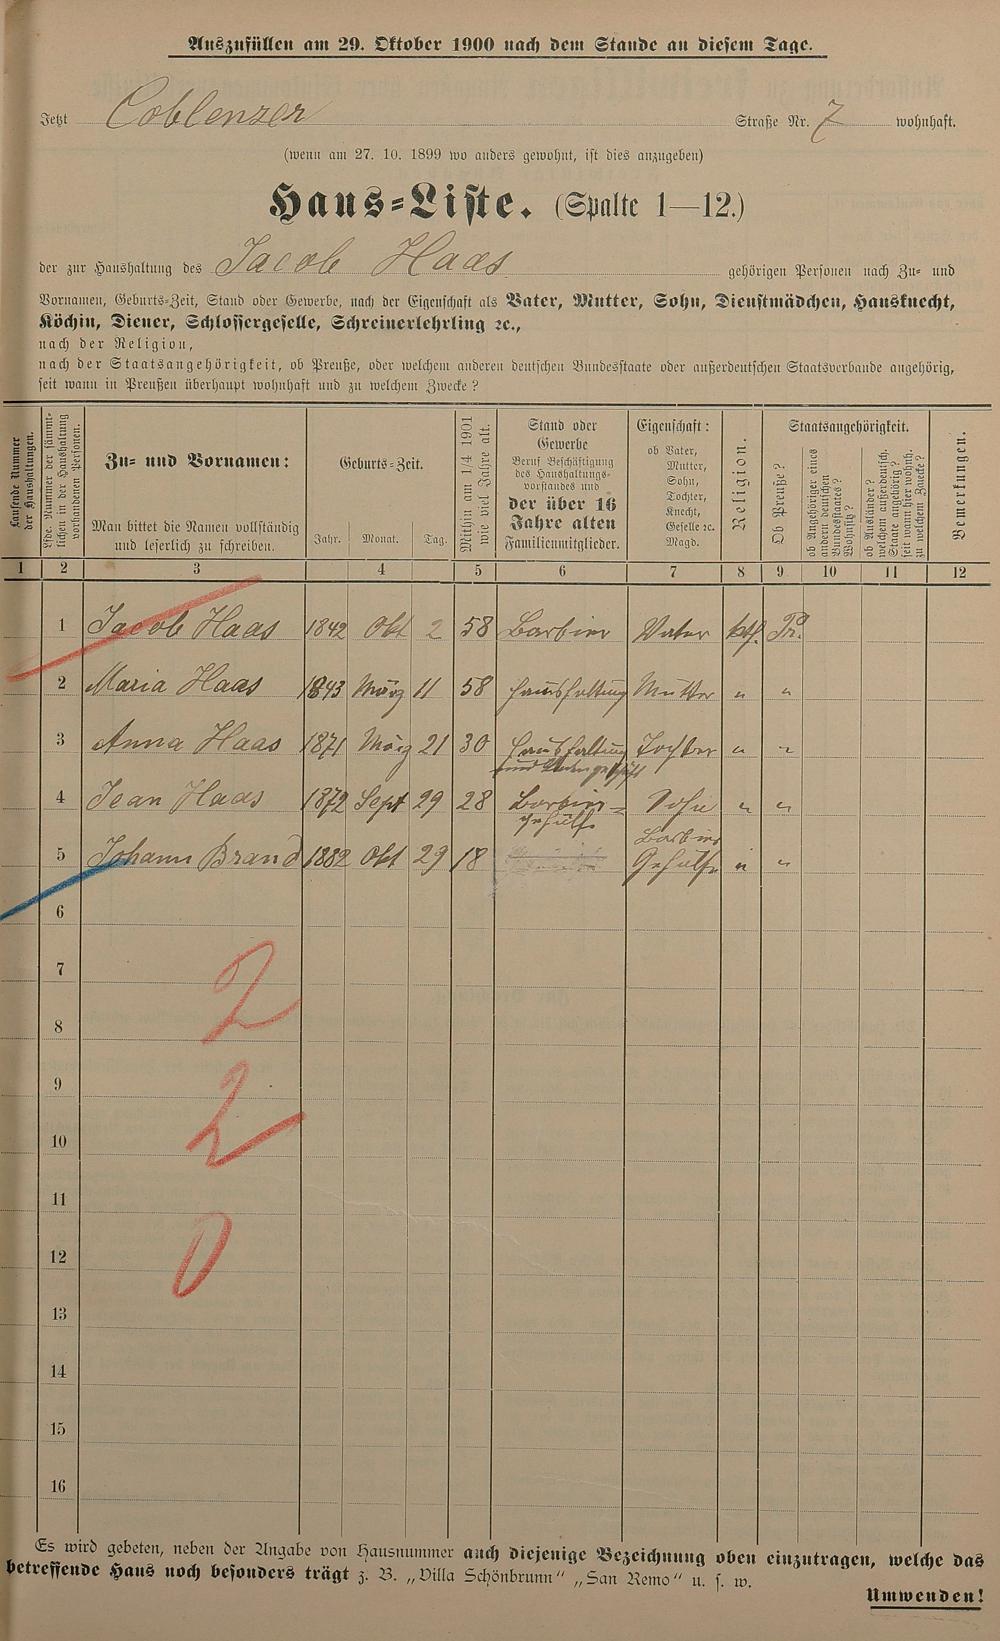 Auszufüllen am 29. Oktober 1900 nach dem Stande an diesem Tage.
Jetzt Coblenzer Straße Nr. 7 wohnhaft.
(wenn am 27. 10. 1899 wo anders gewohnt, ist dies anzugeben)
Haus-Liste. (Spalte 1—12.)
der zur Haushaltung des Jacob Haas gehörigen Personen nach Zu- und
Vornamen, Geburts-Zeit, Stand oder Gewerbe, nach der Eigenschaft als Vater, Mutter, Sohn, Dienstmädchen, Hausknecht,
Köchin, Diener, Schlossergeselle, Schreinerlehrling ꝛc.,
nach der Religion,
nach der Staatsangehörigkeit, ob Preuße, oder welchem anderen deutschen Bundesstaate oder außerdeutschen Staatsverbande angehörig,
seit wann in Preußen überhaupt wohnhaft und zu welchem Zwecke?
Laufende Nummer
der Haushaltungen.
Lfde. Nummer der sämmt-
lichen in der Haushaltung
vorhandenen Personen.
Zu- und Vornamen:
Man bittet die Namen vollständig
und leserlich zu schreiben.
Geburts-Zeit.
Jahr. Monat. Tag.
Mithin am 1/4 1901
wie viel Jahre alt.
Stand oder
Gewerbe
Beruf Beschäftigung
des Haushaltungs-
vorstandes und
der über 16
Jahre alten
Familienmitglieder.
Eigenschaft:
ob Vater,
Mutter,
Sohn,
Tochter,
Knecht,
Geselle ꝛc.
Magd.
Religion.
Staatsangehörigkeit.
Ob Preuße?
ob Angehöriger eines
andern deutschen
Bundesstaates?
Wohnsitz?
ob Ausländer?
welchem außerdeutsch.
Staate angehörig?
seit wann hier wohnh.
zu welchem Zwecke?
Bemerkungen.
1 2 3 4 5 6 7 8 9 10 11 12
1 Jacob Haas 1842 Okt 2 58 Barbier Vater kth. Pr.
2 Maria Haas 1843 März 11 58 Haushaltung Mutter " "
3 Anna Haas 1871 März 21 30 Haushaltung Tochter " "
und
4 Jean Haas 1872 Sept 29 28 Barbier- Sohn " "
gehülfe
Barbier
5 Johann Brand 1882 Okt 29 18 Gehülfe " "
6
7
2
8
9
2
10
11
12
0
13
14
15
16
Es wird gebeten, neben der Angabe von Hausnummer auch diejenige Bezeichnung oben einzutragen, welche das
betreffende Haus noch besonders trägt z. B. „Villa Schönbrunn" „San Remo" u. s. w.
Umwenden!